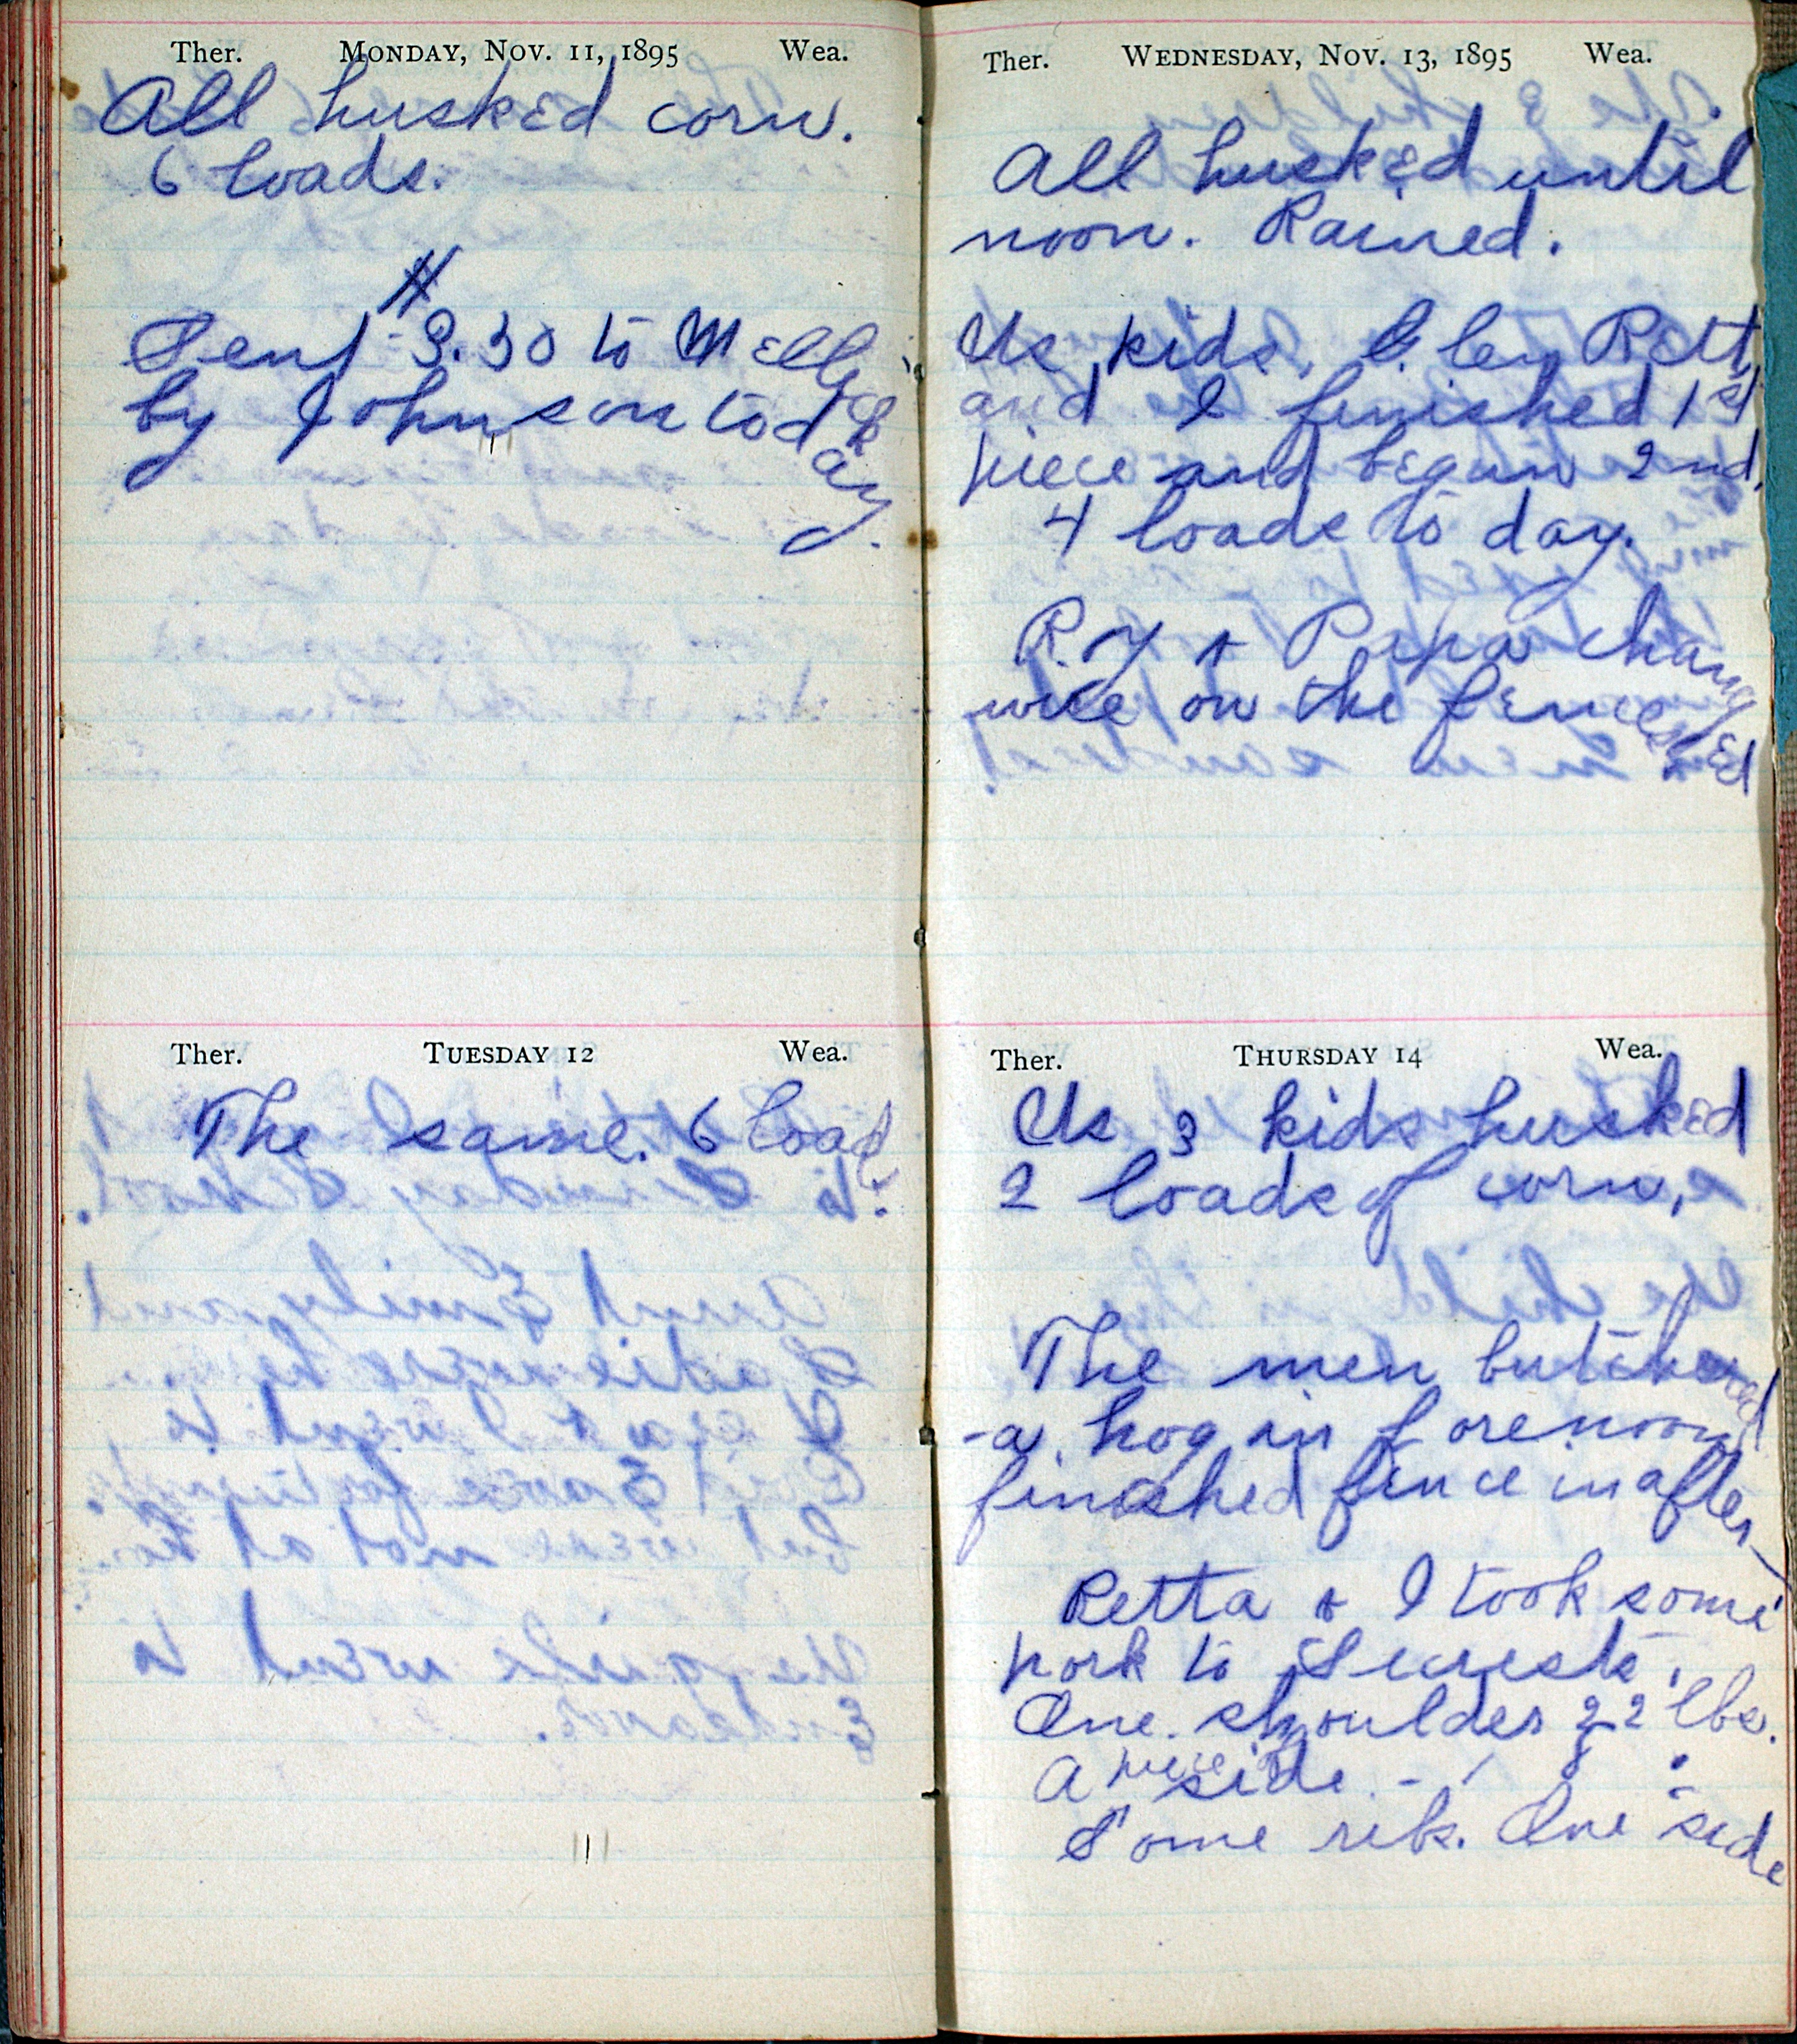 Ther. MONDAY, NOV. 11, 1895 Wea.
All husked corn.
6 loads.
Sent $3.30 to
by Johnson today.
Ther. TUESDAY 12 Wea.
The same. 6 loads.
Ther. WEDNESDAY, NOV. 13, 1895 Wea.
All husked until
noon. Rained.
Us kids, Retta
and I finished 1st
piece and began 2nd.
4 loads to day.
Roy & Papa changed
wire on the fences
Ther. THURSDAY 14 Wea.
Us 3 kids husked
2 loads of corn.
The men butchered
a hog in forenoon
finished fence in after-
Retta & I took some
pork to Secrests.
One shoulder 22 lbs.
A piece side -
Some ribs. One side